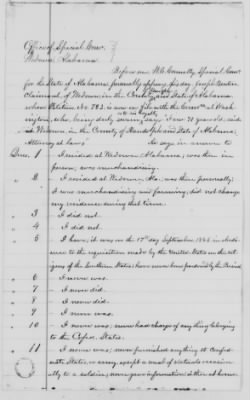 Office of Special Com.
Wedowee, Alabama
Before me W. H. Connelly Special Com.
for the State of Alabama, personally appeared
claimant, of Wedowee, in the County and State of Alabama
whose Petition No 783 is now on file with the Com at Wash
ington, who being duly sworn, say "I am 70 years old, reside
at Wedowee in the County of Randolph State of Alabama,
Attorney at law" So say in answer to
Ques. 1 I resided at Wedowee Alabama, was there in
person, was merchandising.
" 2 I resided at Wedowee Ala. was there personally;
I was merchandising and farming; did not change
my residence during that time.
" 3 - I did not.
" 4 - I did not.
" 5 I have, it was on the 17th day September 1865 in obedience
to the requisition made by the United States on the cit-
izens of the Southern States have been pardoned by the Presid
" 6 - I never was.
" 7 - I never did.
" 8 - I never did.
" 9 - I never was.
" 10 - I never was, never had charge of any thing belonging
to the Confed. States.
" 11 - I never was, never furnished anything to Confed-
erate States, or army, except a meal of victuals occasion
ally to a soldier, never gave information either at home